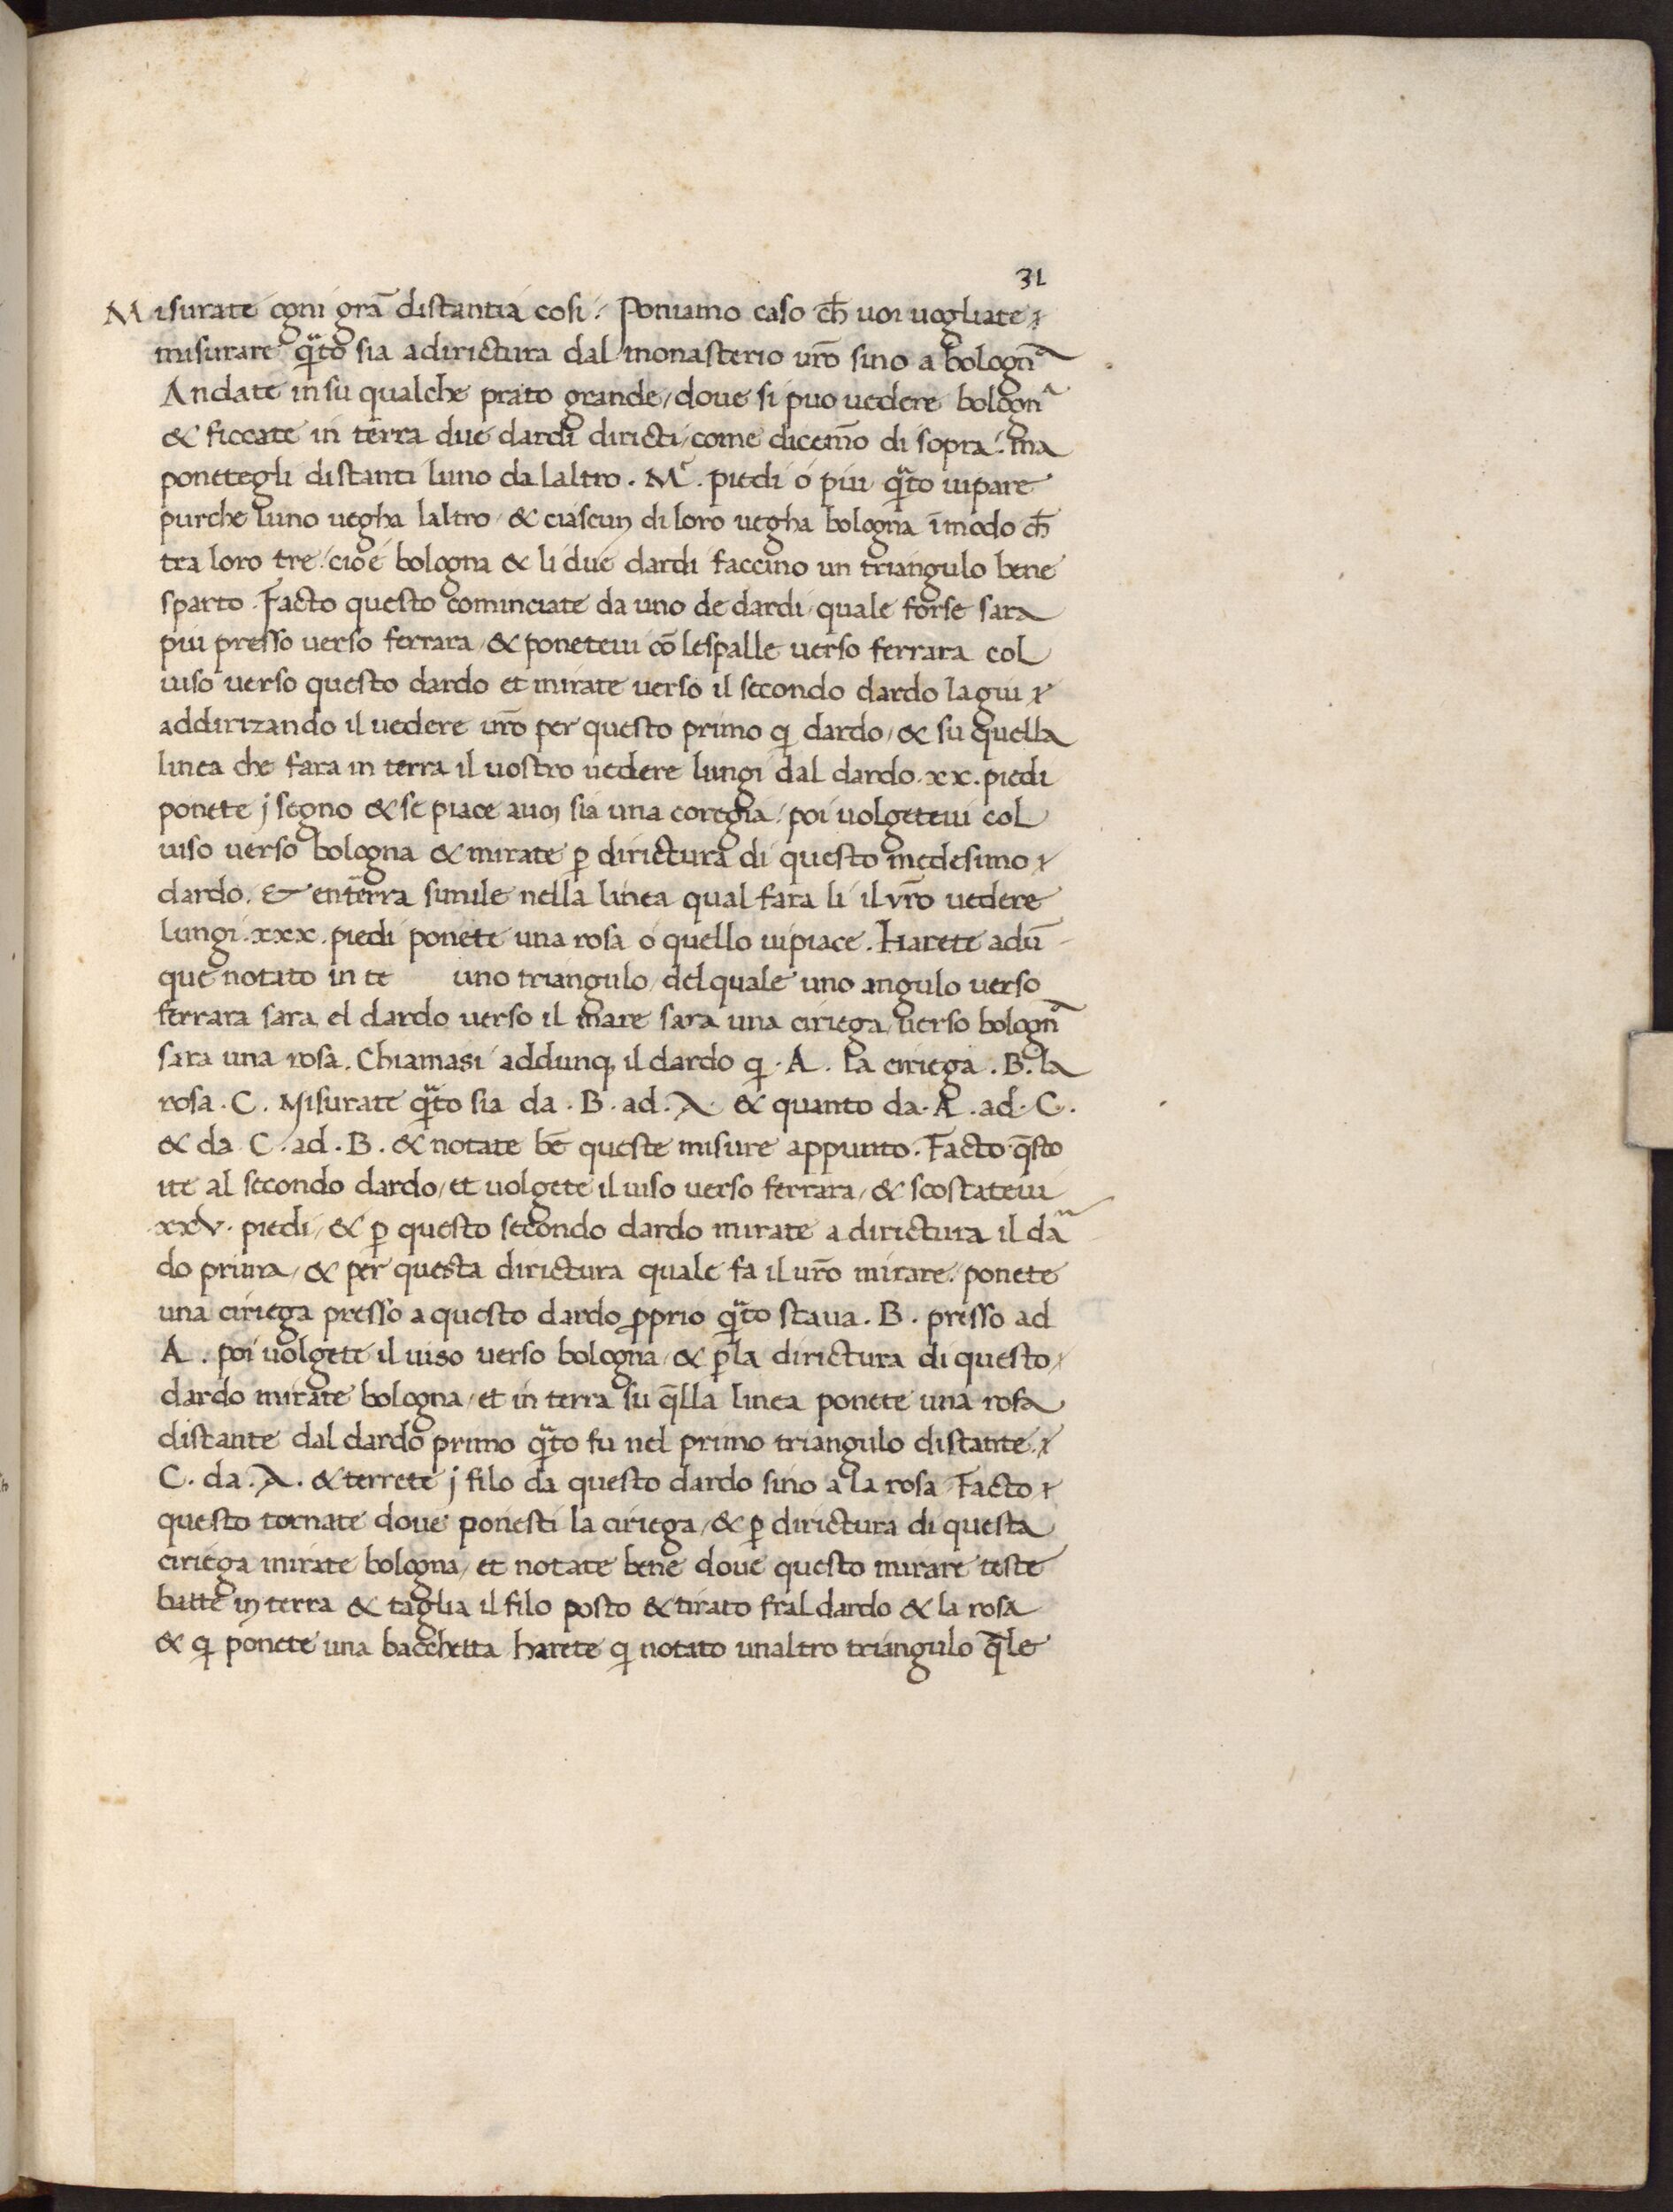 31
Misurate ogni grā distantia cosi. Poniamo caso ch̄ uoi uogliate
misurare qͣto sia adirictura dal monasterio ur̄o sino a bolognᵃ
Andate in su qualche prato grande / doue si puo uedere bolognᵃ
& ficcate in terra due dardi diricti / come dicem̄o di sopra. ma
ponetegli distanti luno da laltro . Mᵉ. piedi o piu qͣto uipare
purche luno uegha laltro / & ciascun di loro uegha bologna ī modo ch̄
tra loro tre / cioe bologna & li due dardi faccino un triangulo bene
sparto. Facto questo cominciate da uno de dardi / quale forse sara
piu presso uerso ferrara / & poneteui cō lespalle uerso ferrara col
uiso uerso questo dardo et mirate uerso il secondo dardo la giu
addirizando il uedere ur̄o per questo primo qi dardo / & su quella
linea che fara in terra il uostro uedere lungi dal dardo . xx. piedi
ponete j segno & se piace auoi sia una coregia / poi uolgeteui col
uiso uerso bologna & mirate p̱ dirictura di questo medesimo
dardo. & enterra simile nella linea qual fara li il vr̄o uedere
lungi . xxx. piedi ponete una rosa o quello uipiace. Harete adū
que notato in te uno triangulo / delquale uno angulo uerso
ferrara sara el dardo uerso il mare sara una ciriega / uerso bolognᵃ
sara una rosa. Chiamasi addunq; il dardo qi . A. la ciriega . B. la
rosa . C. Misurate qͣto sia da . B. ad . A. & quanto da . A. ad . C.
& da C. ad . B. & notate bē queste misure appunto. Facto q̄sto
ite al secondo dardo / et uolgete il uiso uerso ferrara / & scostateui
xxv. piedi / & p̱ questo secondo dardo mirate a dirictura il daʳ
do prima / & per questa dirictura quale fa il ur̄o mirare. ponete
una ciriega presso a questo dardo p̱prio qͣto staua. B. presso ad
A. poi uolgete il uiso uerso bologna / & p̱ la dirictura di questo
dardo mirate bologna / et in terra su q̄lla linea ponete una rosa
distante dal dardo primo qͣto fu nel primo triangulo distante
C. da . A. & terrete j filo da questo dardo sino a la rosa Facto
questo tornate doue ponesti la ciriega / & p̱ dirictura di questa
ciriega mirate bologna / et notate bene doue questo mirare teste
batte in terra & taglia il filo posto & tirato fral dardo & la rosa
& qi ponete una bacchetta harete qi notato unaltro triangulo q̄le